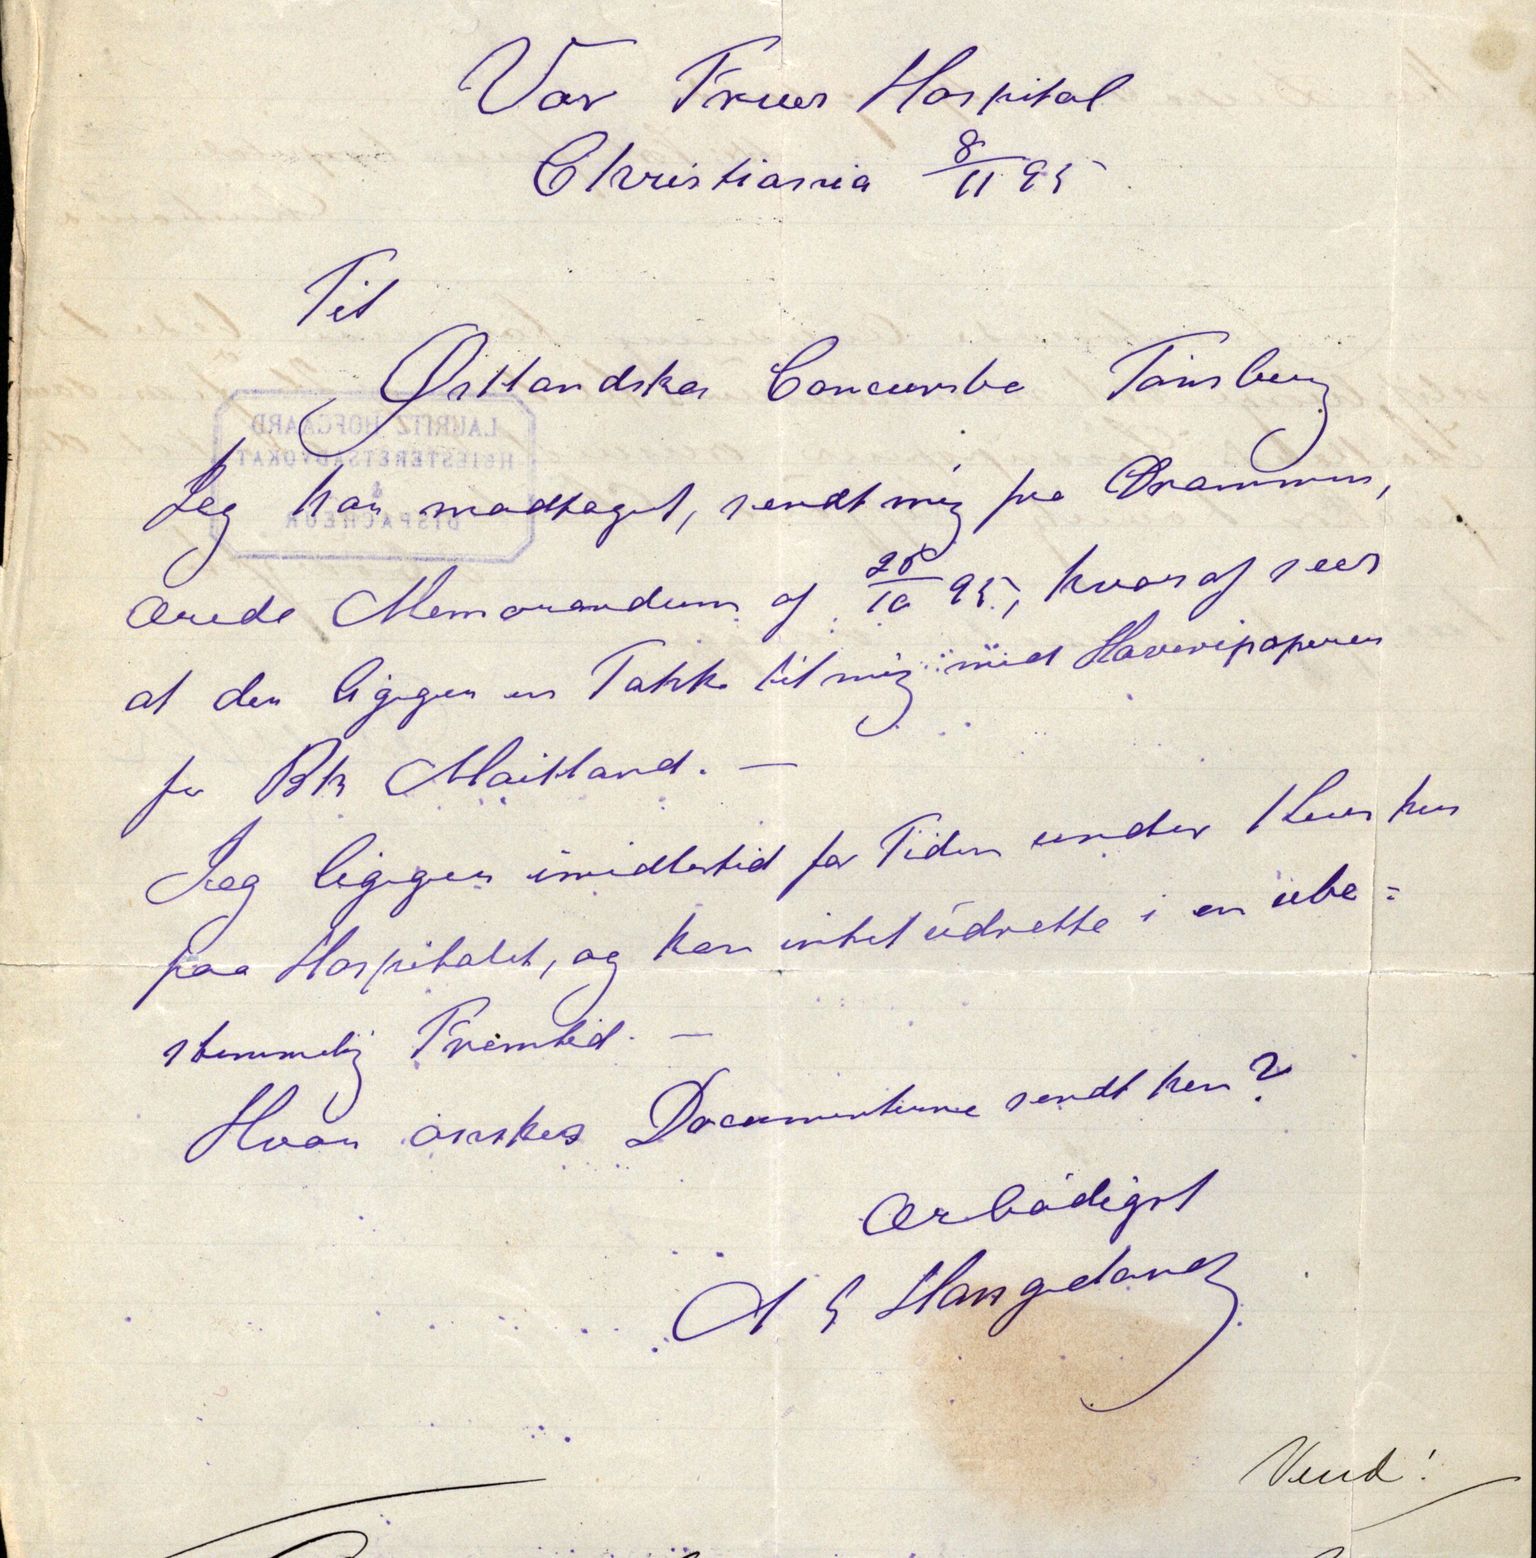 Vor Frues Hospital
Christiania 8/11 95
Til
Østlandske Concurube Tønsberg
Jeg har modtaget, sendt mig fra Drammen,
ærede Memorandum af 28/10 95, hvoraf sees
at der ligger en Pakke til mig med Havaripapirer
for Bk Maitland. —
Jeg ligger imidlertid for Tiden under Kur her
paa Hospitalet, og kan intet udrette i en ube=
stemmelig Fremtid. —
Hvor ønskes Documenterne sendt hen?
Ærbødigst
Vend!
LAURITZ HOFGAARD
HØIESTERETSADVOKAT
&
DISPACHEUR